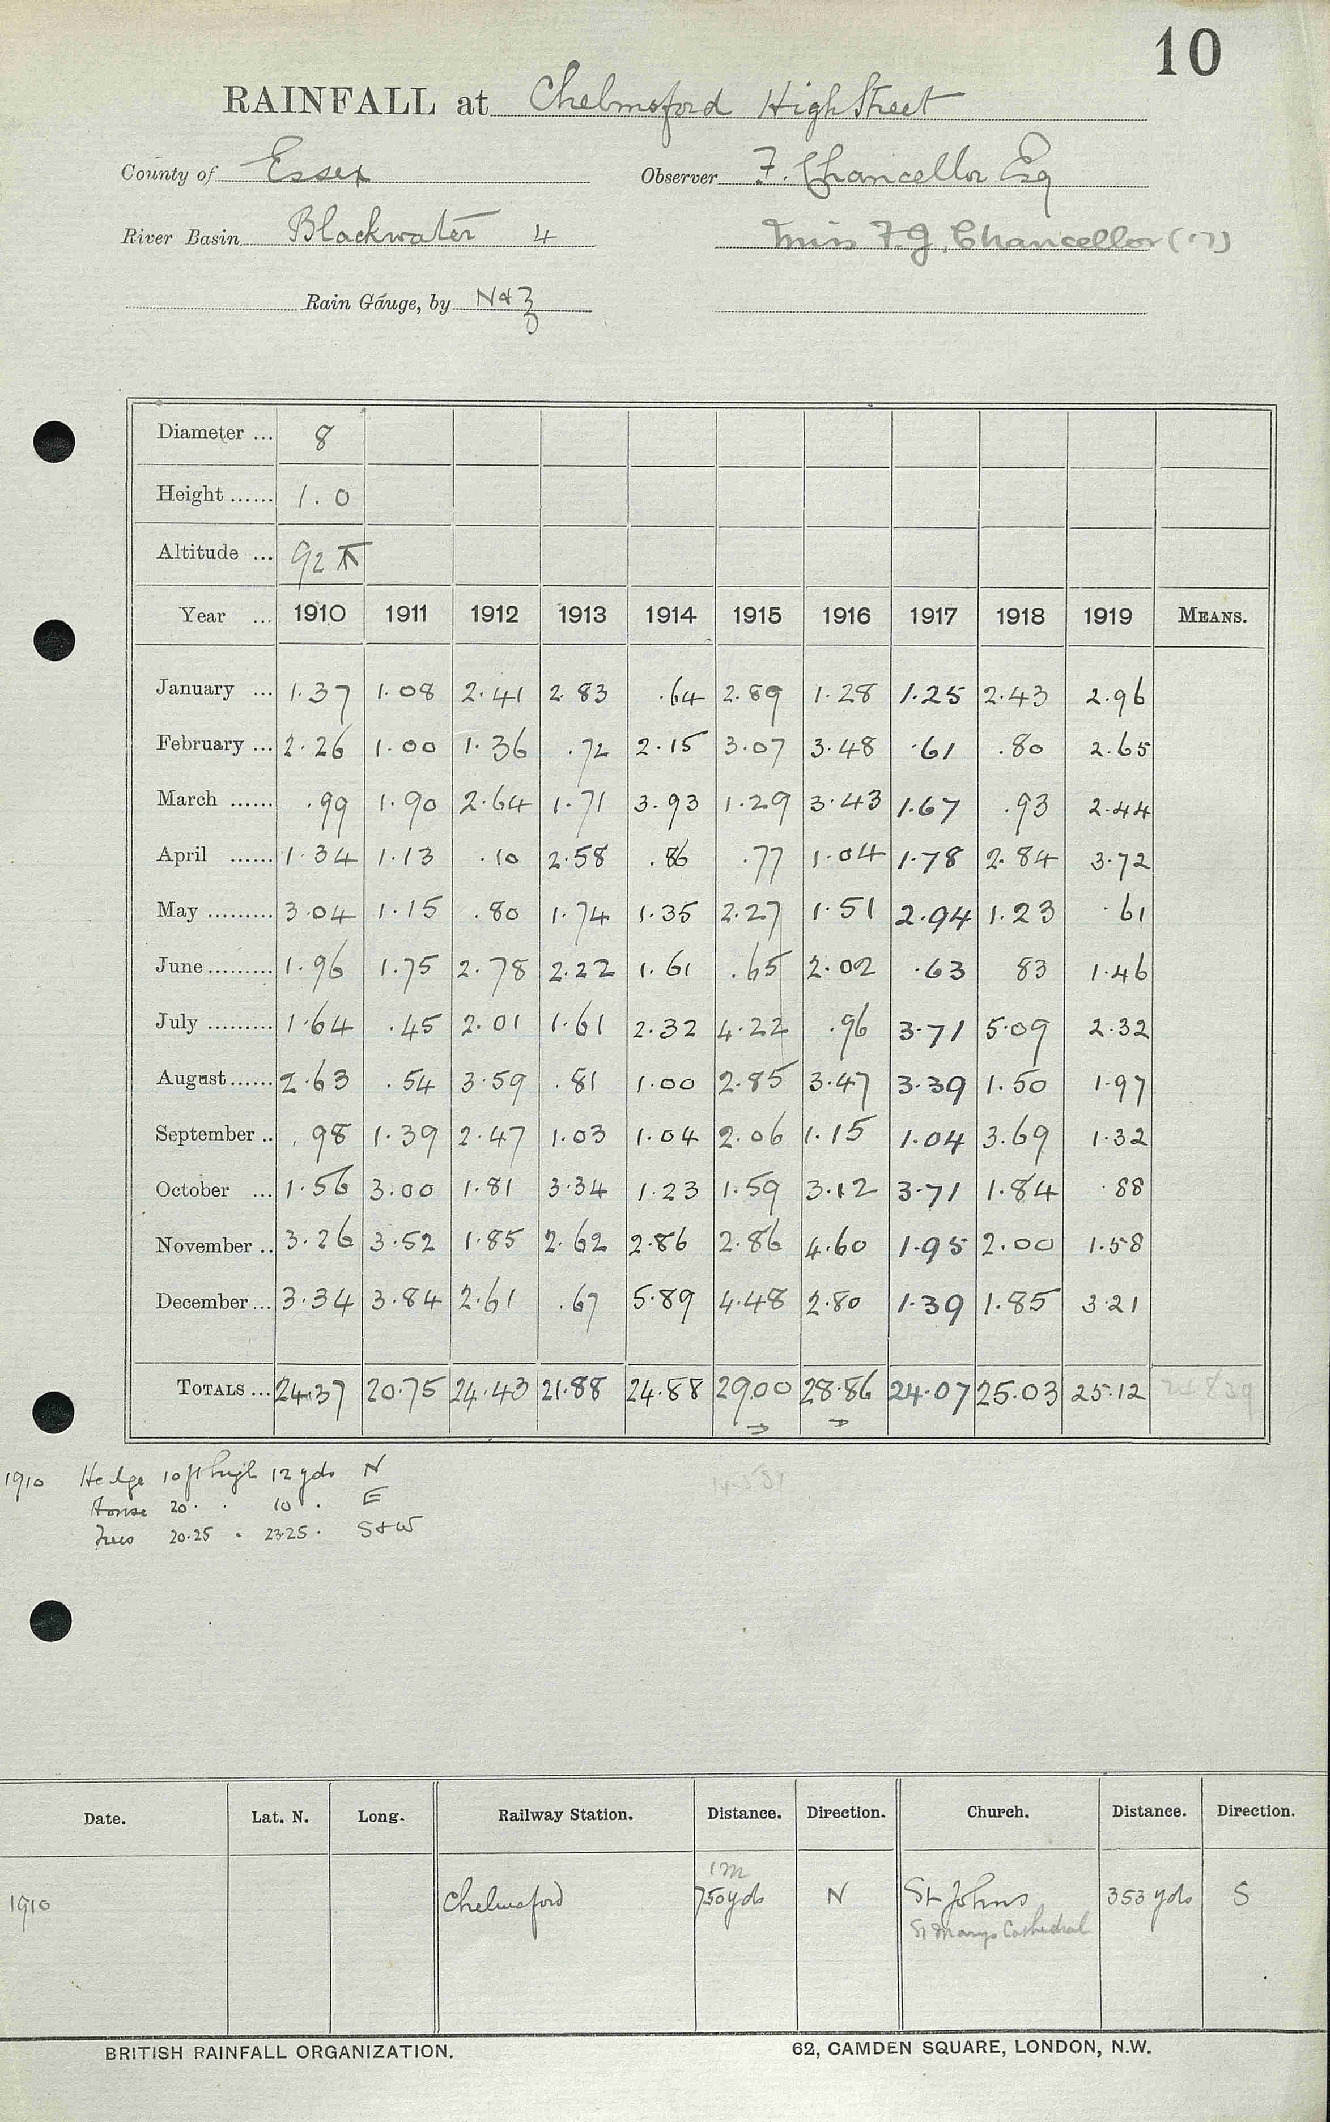 10
RAINFALL at Chelmsford High Street
County of Essex Observer F. Chancellor Esq
River Basin Blackwater 4 Miss F.G. Chancellor ('17)
Rain Gauge, by N & Z
Diameter ... 8
Height ...... 1.0
Altitude ... 92 ft
Year ... 1910 1911 1912 1913 1914 1915 1916 1917 1918 1919 MEANS.
January ... 1.37 1.08 2.41 2.83 .64 2.89 1.28 1.25 2.43 2.96
February ... 2.26 1.00 1.36 .72 2.15 3.07 3.48 .61 .80 2.65
March ...... .99 1.90 2.64 1.71 3.93 1.29 3.43 1.67 .93 2.44
April ...... 1.34 1.13 .10 2.58 .86 .77 1.04 1.78 2.84 3.72
May ......... 3.04 1.15 .80 1.74 1.35 2.27 1.51 2.94 1.23 .61
June ......... 1.96 1.75 2.78 2.22 1.61 .65 2.02 .63 83 1.46
July ......... 1.64 .45 2.01 1.61 2.32 4.22 .96 3.71 5.09 2.32
August ...... 2.63 .54 3.59 .81 1.00 2.85 3.47 3.39 1.50 1.97
September .. .98 1.39 2.47 1.03 1.04 2.06 1.15 1.04 3.69 1.32
October ... 1.56 3.00 1.81 3.34 1.23 1.59 3.12 3.71 1.84 .88
November .. 3.26 3.52 1.85 2.62 2.86 2.86 4.60 1.95 2.00 1.58
December ... 3.34 3.84 2.61 .67 5.89 4.48 2.80 1.39 1.85 3.21
TOTALS ... 24.37 20.75 24.43 21.88 24.88 29.00 28.86 24.07 25.03 25.12
1910 Hedge 10 ft high 12 yds N
House 20 . . 10 . E
Trees 20.25 . 23.25 . S & W
Date. Lat. N. Long. Railway Station. Distance. Direction. Church. Distance. Direction.
1m
1910 Chelmsford 750 yds N St Johns 353 yds S
St Marys Cathedral
BRITISH RAINFALL ORGANIZATION. 62, CAMDEN SQUARE, LONDON, N.W.